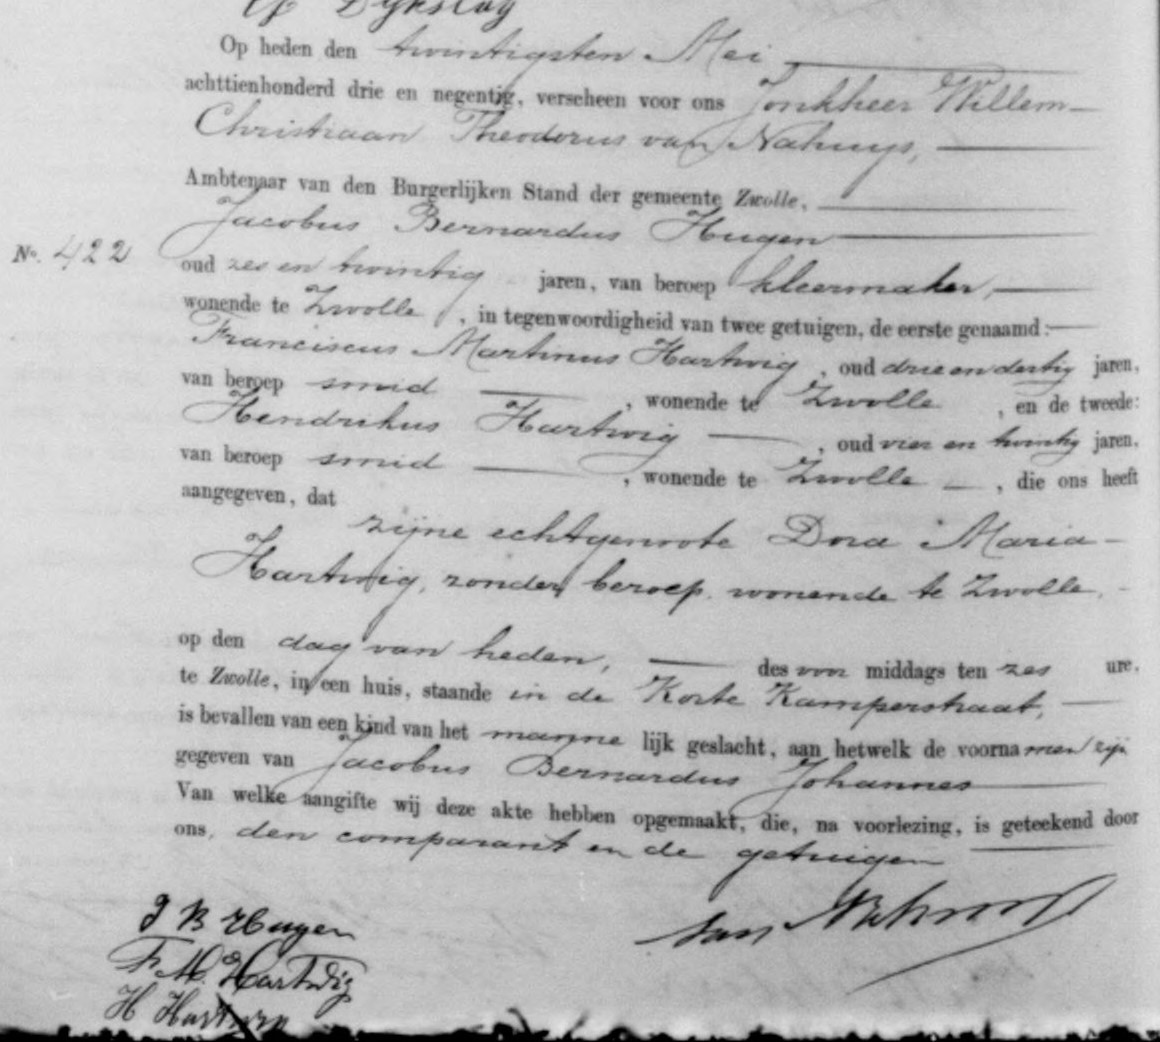 Op heden den twintigsten Mei
achttienhonderd drie en negentig, verscheen voor ons Jonkheer Willem
Christiaan Theodorus van Nahuys,
Ambtenaar van den Burgerlijken Stand der gemeente Zwolle,
Jacobus Bernardus Hugen
No. 422
oud zes en twintig jaren, van beroep kleermaker,
wonende te Zwolle, in tegenwoordigheid van twee getuigen, de eerste genaamd:
Franciscus Martinus Hartwig, oud drie en dertig jaren,
van beroep smid, wonende te Zwolle, en de tweede:
Hendrikus Hartwig, oud vier en twintig jaren,
van beroep smid, wonende te Zwolle, die ons heeft
aangegeven, dat
zijne echtgenoote Dora Maria
Hartwig, zonder beroep, wonende te Zwolle,
op den dag van heden, des voor middags ten zes ure,
te Zwolle, in een huis, staande in de Korte Kamperstraat,
is bevallen van een kind van het manne lijk geslacht, aan hetwelk de voorna men zijn
gegeven van Jacobus Bernardus Johannes
Van welke aangifte wij deze akte hebben opgemaakt, die, na voorlezing, is geteekend door
ons, den comparant en de getuigen
van Nahuys
J B Hugen
F. M. Hartwig
H Hartwig